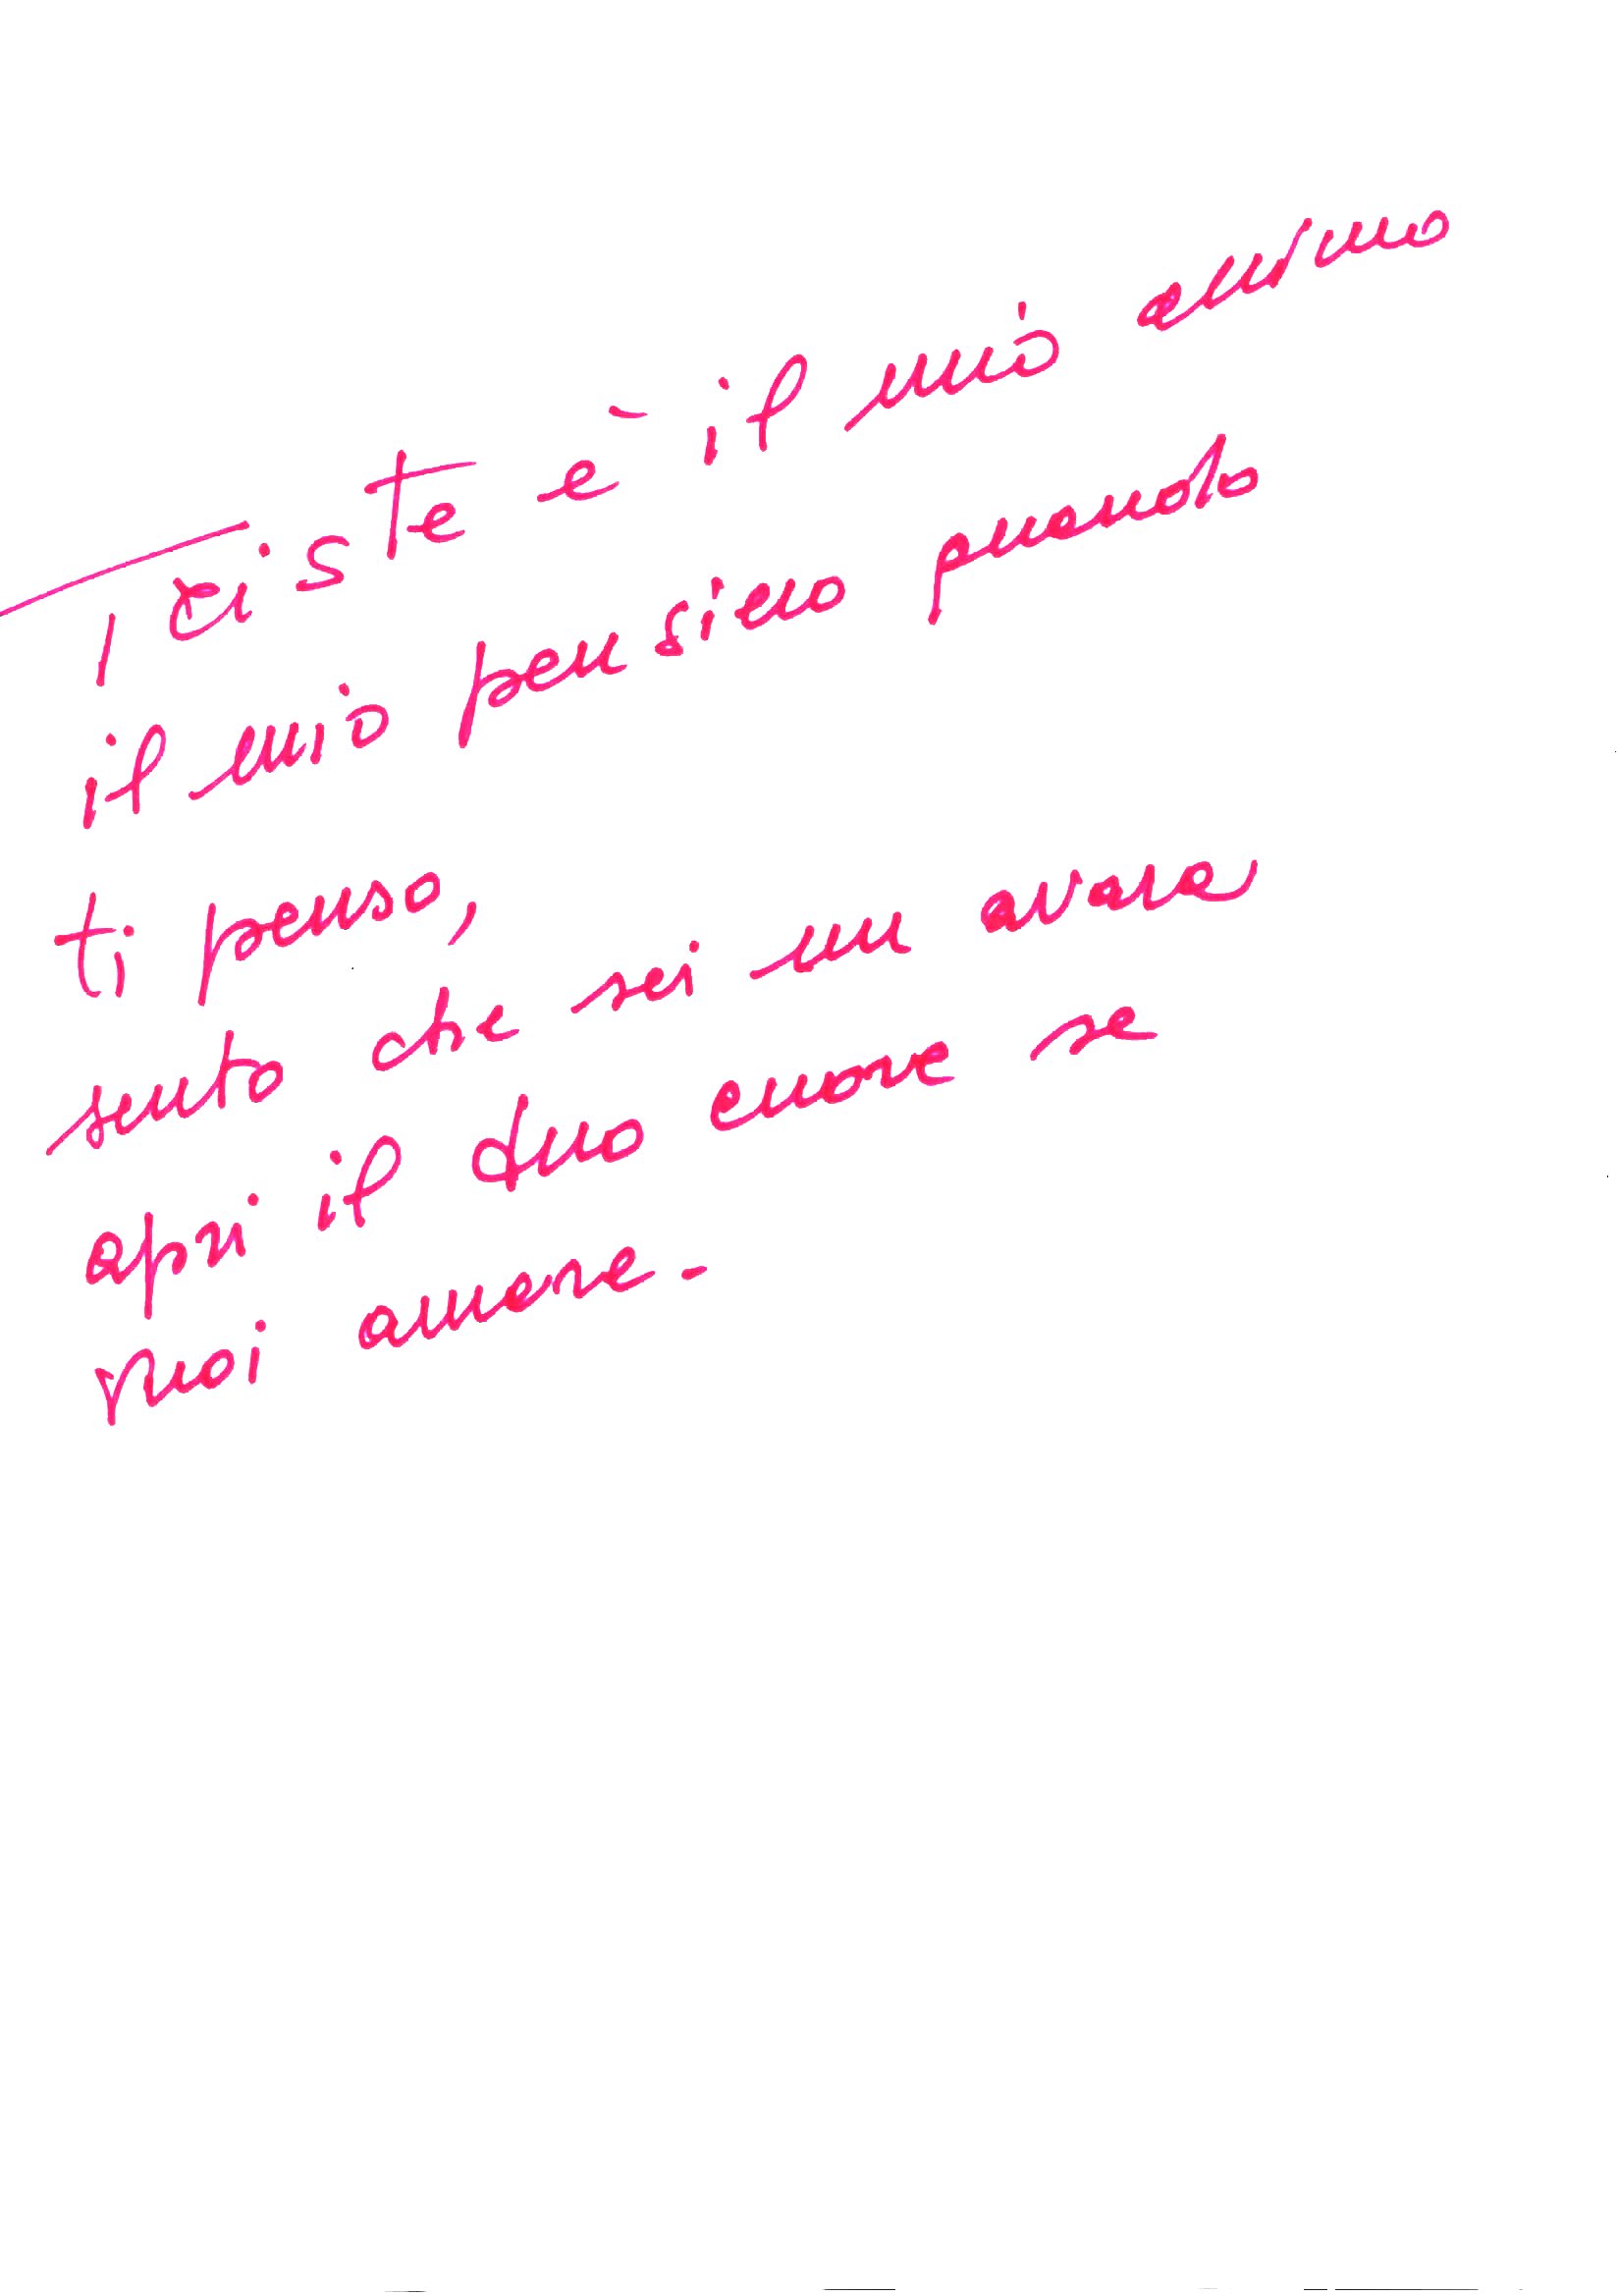 Triste è il mio animo
il mio pensiero quando
ti penso,
sento che sei un avara
apri il tuo cuore se
vuoi amare.-